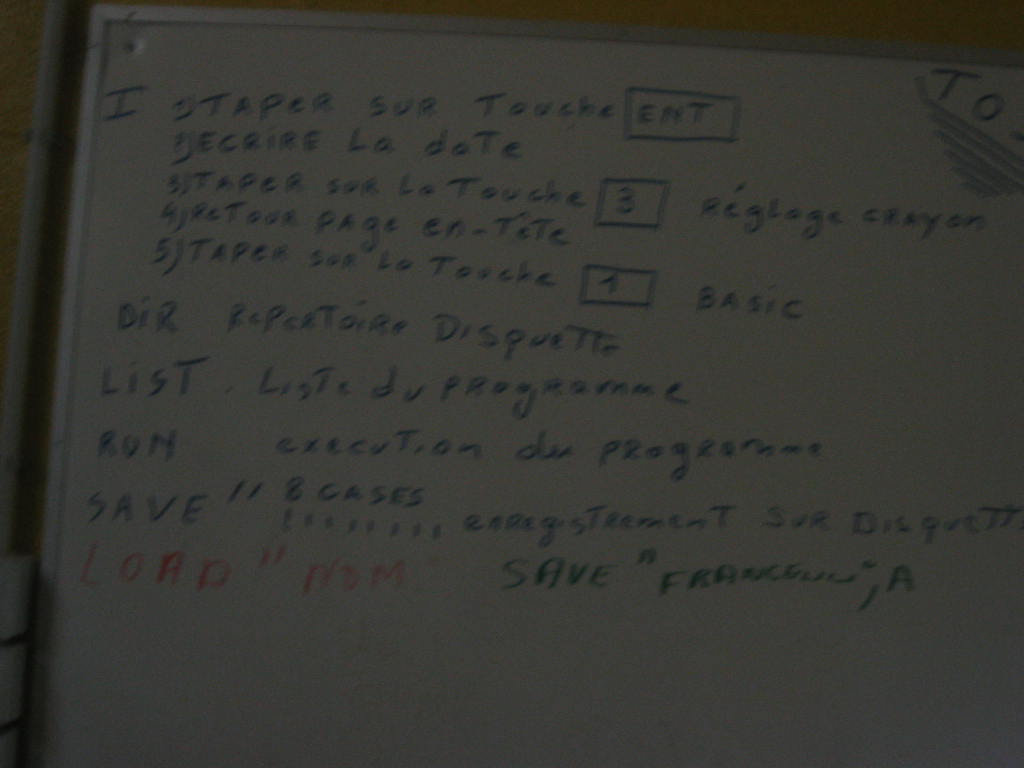 I 1) TAPER SUR Touche ENT
TO
2) ECRIRE La daTe
3) TAPER sur La Touche 3 Réglage CRAYon
4) ReTour page en-TêTe
5) TAPER sur La Touche 1 BASIC
DiR RePERToiRe DISqueTTe
LiST . LisTe du programme
RUN execuTion du programme
SAVE " 8 CASES enregisTremenT SUR DisqueTTe
LOAD " NOM " SAVE " ",A